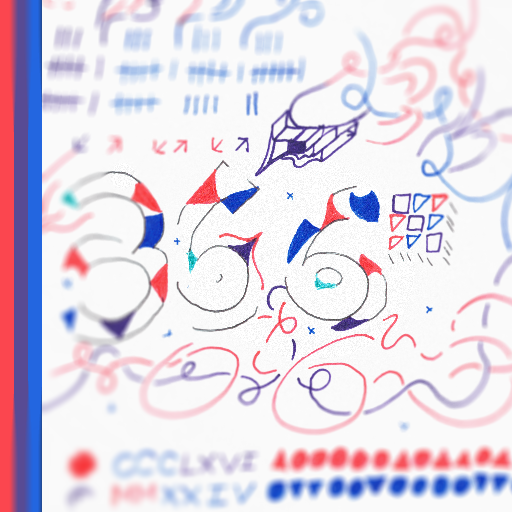 366
CCCLXVI
MMXXIV